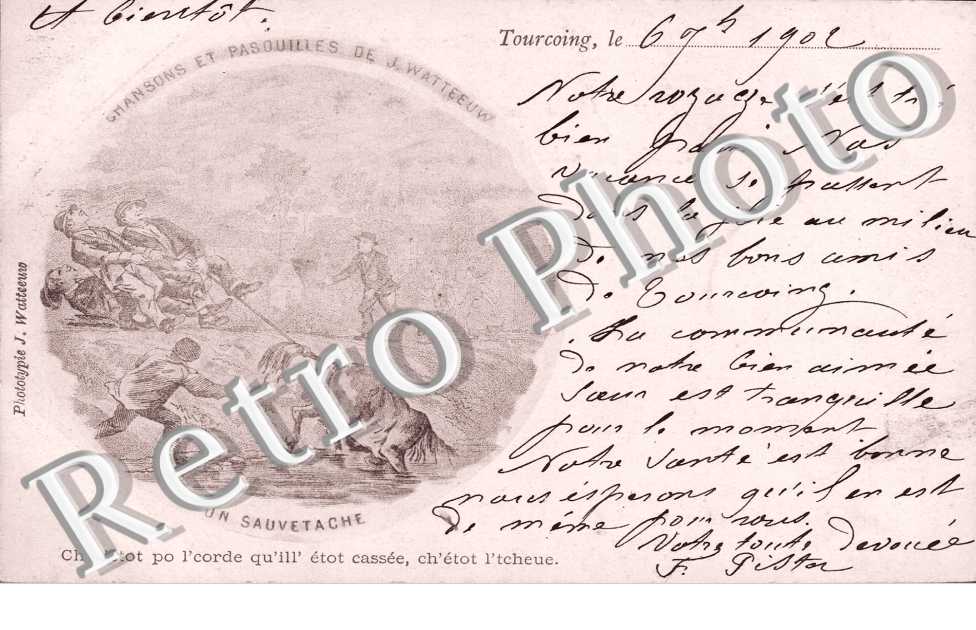 A bientôt.
Tourcoing, le 6 7bh 1902
CHANSONS ET PASQUILLES DE J. WATTEEUW
Notre voyage s'est très
bien fait. Nos
vacances se passent
dans la joie au milieu
de nos bons amis
de Tourcoing.
La communauté
de notre bien aimée
Sœur est tranquille
pour le moment
Notre santé est bonne
nous ésperons qu'il en est
de même pour vous.
Votre toute dévouée
F. Pister
Phototypie J. Watteeuw
UN SAUVETACHE
po l'corde qu'ill' étot cassée, ch'étot l'tcheue.
Retro Photo